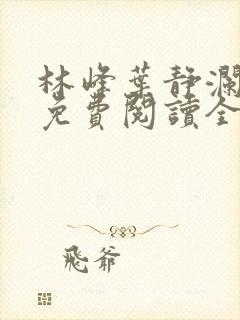 林峰葉靜瀾
免費閱讀全
飛爺